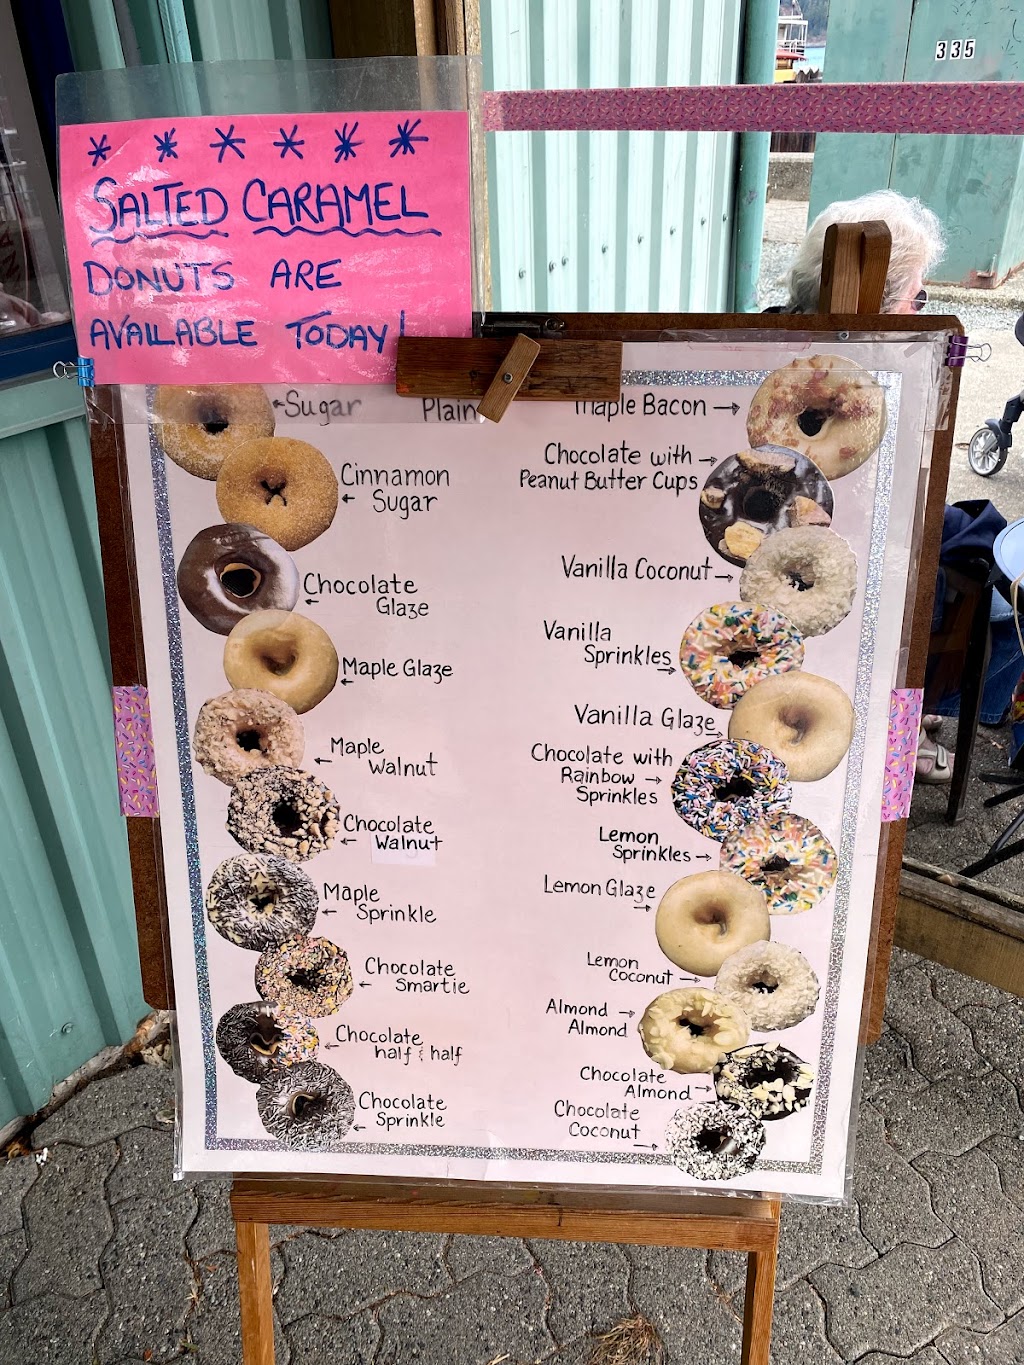 335
* * * * * *
SALTED CARAMEL
DONUTS ARE
AVAILABLE TODAY!
←Sugar
Plain
Cinnamon
← Sugar
Chocolate
← Glaze
Maple Glaze
←
Maple
← Walnut
Chocolate
← Walnut
Maple
← Sprinkle
Chocolate
← Smartie
Chocolate
← half & half
Chocolate
← Sprinkle
Maple Bacon →
Chocolate with →
Peanut Butter Cups
Vanilla Coconut →
Vanilla
Sprinkles →
Vanilla Glaze →
Chocolate with
Rainbow →
Sprinkles
Lemon
Sprinkles →
Lemon Glaze →
Lemon
Coconut →
Almond →
Almond
Chocolate
Almond →
Chocolate
Coconut →